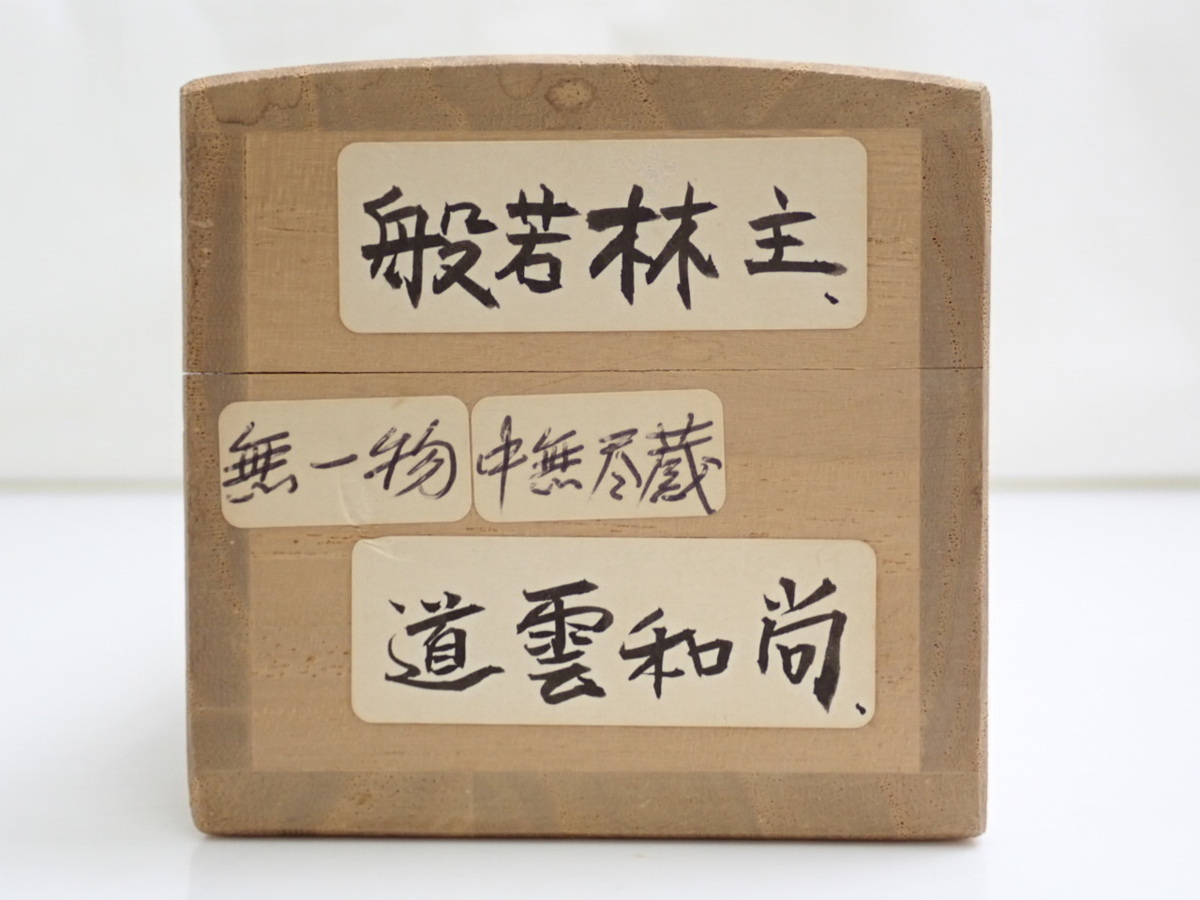 般若林主、
無一物中無尽蔵
道雲和尚、